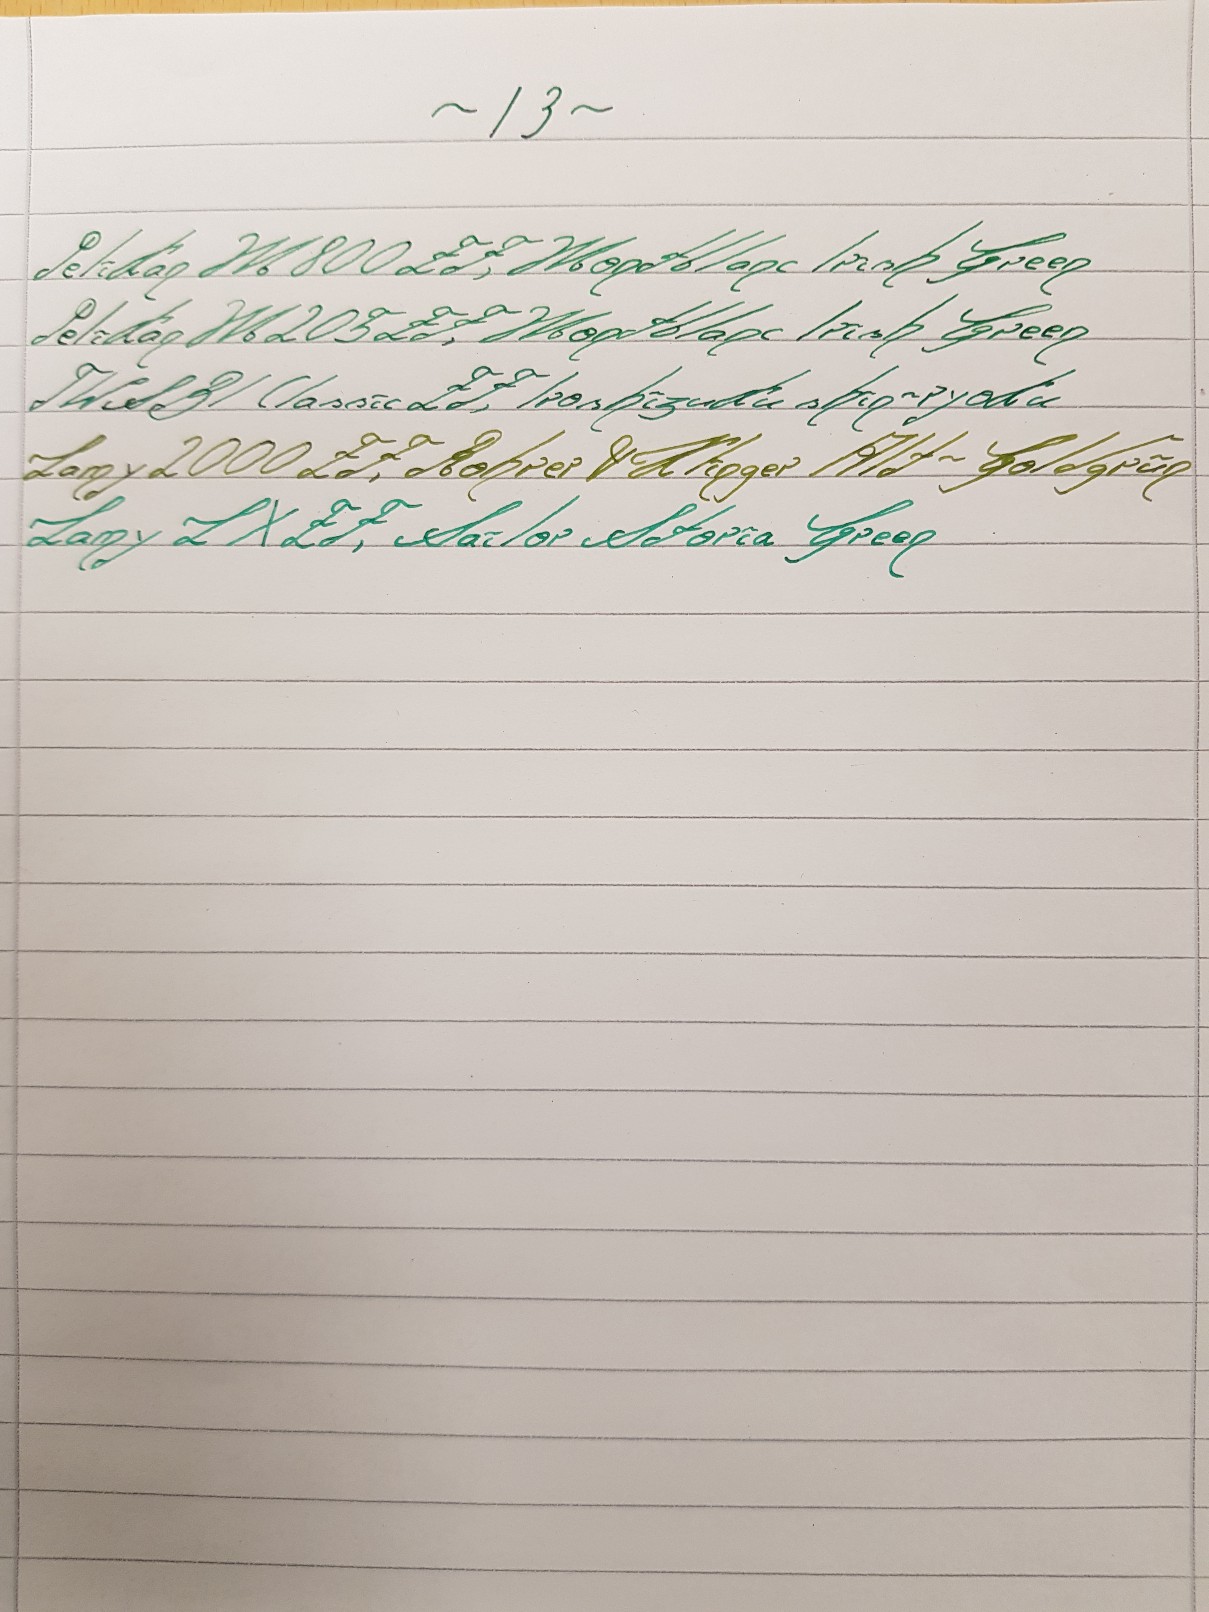 ~13~
Pelikan M800 EF, Montblanc Irish Green
Pelikan M205 EF, Montblanc Irish Green
TWSBI Classic EF, Iroshizuku shin-ryoku
Lamy 2000 EF, Rohrer & Klinger Alt-Goldgrün
Lamy LX EF, Sailor Storia Green